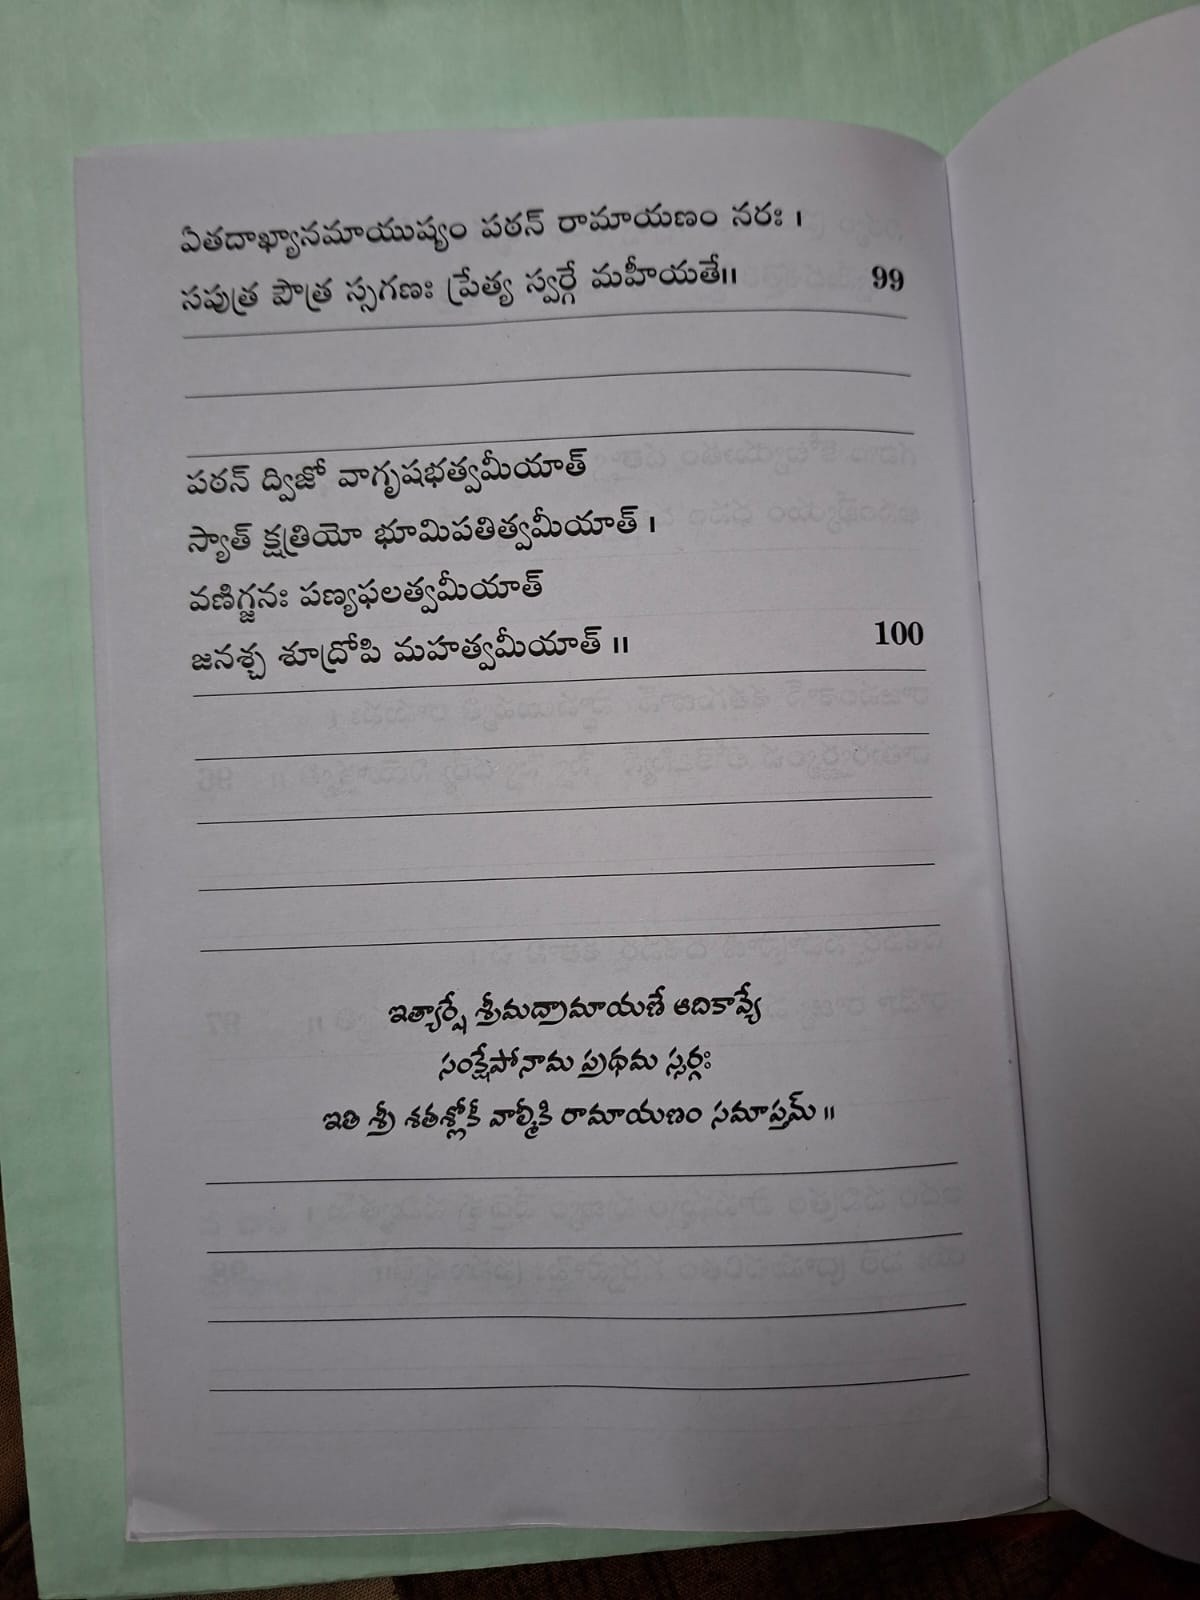 ఏతదాఖ్యానమాయుష్యం పఠన్ రామాయణం నరః ।
సపుత్ర పౌత్ర స్సగణః ప్రేత్య స్వర్గే మహీయతే॥ 99
పఠన్ ద్విజో వాగృషభత్వమీయాత్
స్యాత్ క్షత్రియో భూమిపతిత్వమీయాత్ ।
వణిగ్జనః పణ్యఫలత్వమీయాత్
జనశ్చ శూద్రోపి మహత్వమీయాత్ ॥ 100
ఇత్యార్షే శ్రీమద్రామాయణే ఆదికావ్యే
సంక్షేపోనామ ప్రథమ స్సర్గః
ఇతి శ్రీ శతశ్లోకీ వాల్మీకి రామాయణం సమాప్తమ్ ॥